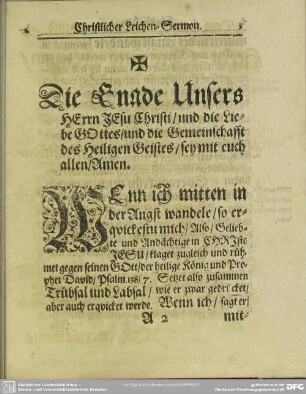 Christlicher Leichen-Sermon. 3
✠
Die Gnade Unsers
HErrn JEsu Christi/ und die Lie-
be GOttes/ und die Gemeinschafft
des Heiligen Geistes/ sey mit euch
allen/ Amen.
WEnn ich mitten in
der Angst wandele/ so er-
qvickestu mich/ Also/ Gelieb-
te und Andächtige in CHRisto
JESU/ klaget zugleich und rüh-
met gegen seinen GOtt/ der heilige König und Pro-
phet David/ Psalm. 138/ 7. Setzet also zusammen
Trübsal und Labsal/ wie er zwar gedrücket/
aber auch erqvicket werde. Wenn ich/ sagt er/
A 2 mit-